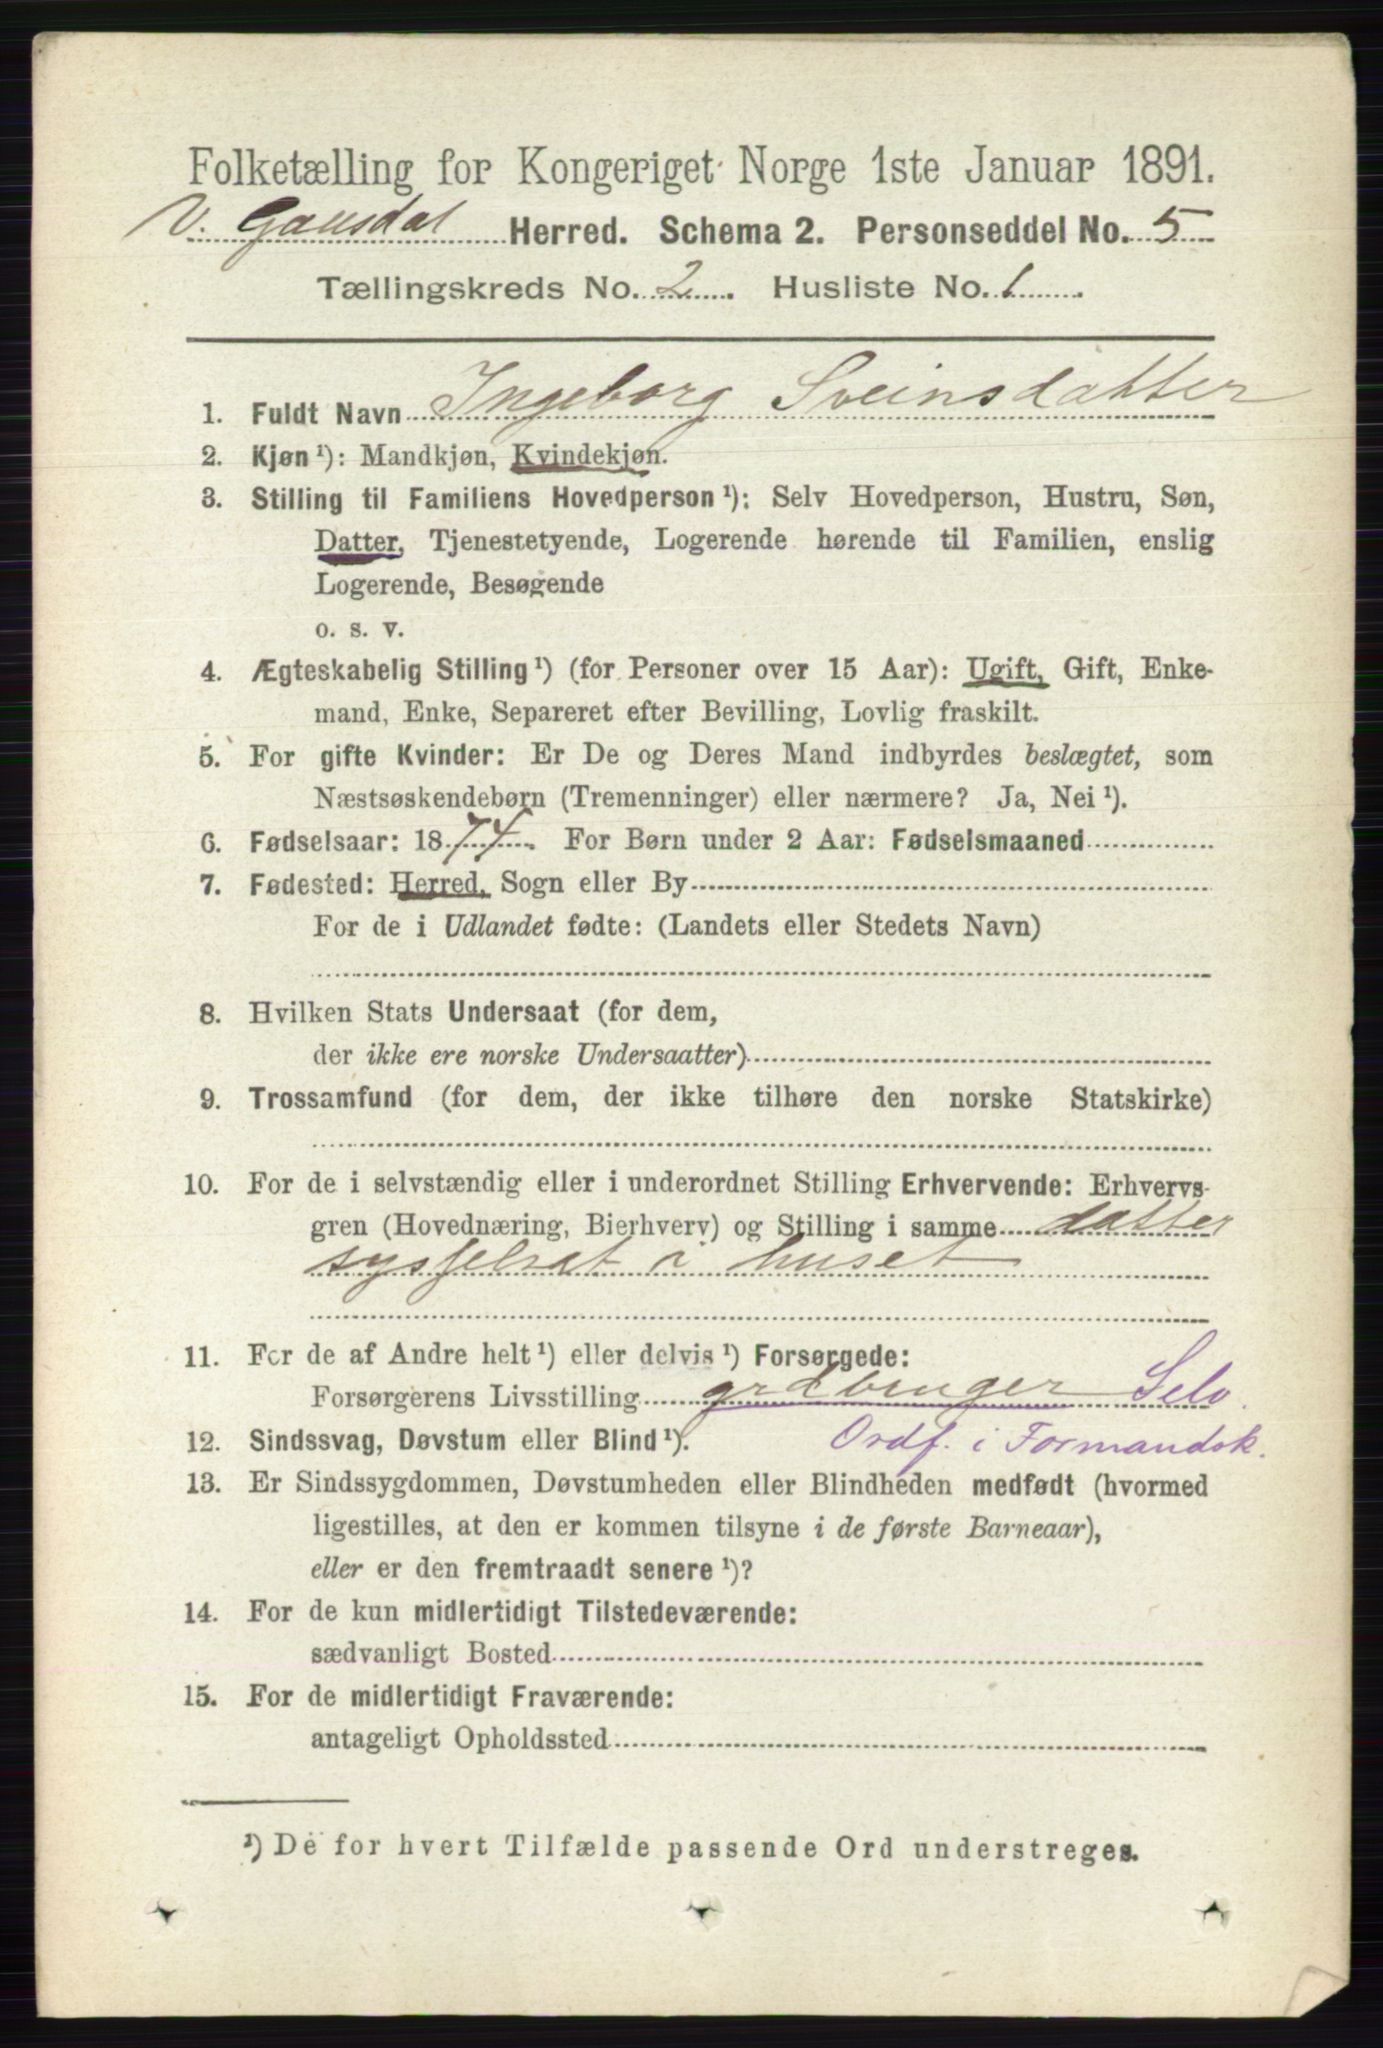 Folketælling for Kongeriget Norge 1ste Januar 1891.
V. Gausdal Herred. Schema 2. Personseddel No. 5
Tællingskreds No. 2. Husliste No. 1
1. Fuldt Navn Ingeborg Sveinsdatter
2. Kjøn ¹): Mandkjøn, Kvindekjøn.
3. Stilling til Familiens Hovedperson ¹): Selv Hovedperson, Hustru, Søn,
Datter, Tjenestetyende, Logerende hørende til Familien, enslig
Logerende, Besøgende
o. s. v.
4. Ægteskabelig Stilling ¹) (for Personer over 15 Aar): Ugift, Gift, Enke-
mand, Enke, Separeret efter Bevilling, Lovlig fraskilt.
5. For gifte Kvinder: Er De og Deres Mand indbyrdes beslægtet, som
Næstsøskendebørn (Tremenninger) eller nærmere? Ja, Nei ¹).
6. Fødselsaar: 1874. For Børn under 2 Aar: Fødselsmaaned
7. Fødested: Herred, Sogn eller By
For de i Udlandet fødte: (Landets eller Stedets Navn)
8. Hvilken Stats Undersaat (for dem,
der ikke ere norske Undersaatter)
9. Trossamfund (for dem, der ikke tilhøre den norske Statskirke)
10. For de i selvstændig eller i underordnet Stilling Erhvervende: Erhvervs-
gren (Hovednæring, Bierhverv) og Stilling i samme datter
sysselsat i huset
11. For de af Andre helt ¹) eller delvis ¹) Forsørgede:
Forsørgerens Livsstilling grdbruger Selv.
12. Sindssvag, Døvstum eller Blind ¹). Ordf. i Formandsk.
13. Er Sindssygdommen, Døvstumheden eller Blindheden medfødt (hvormed
ligestilles, at den er kommen tilsyne i de første Barneaar),
eller er den fremtraadt senere ¹)?
14. For de kun midlertidigt Tilstedeværende:
sædvanligt Bosted
15. For de midlertidigt Fraværende:
antageligt Opholdssted
¹) De for hvert Tilfælde passende Ord understreges.